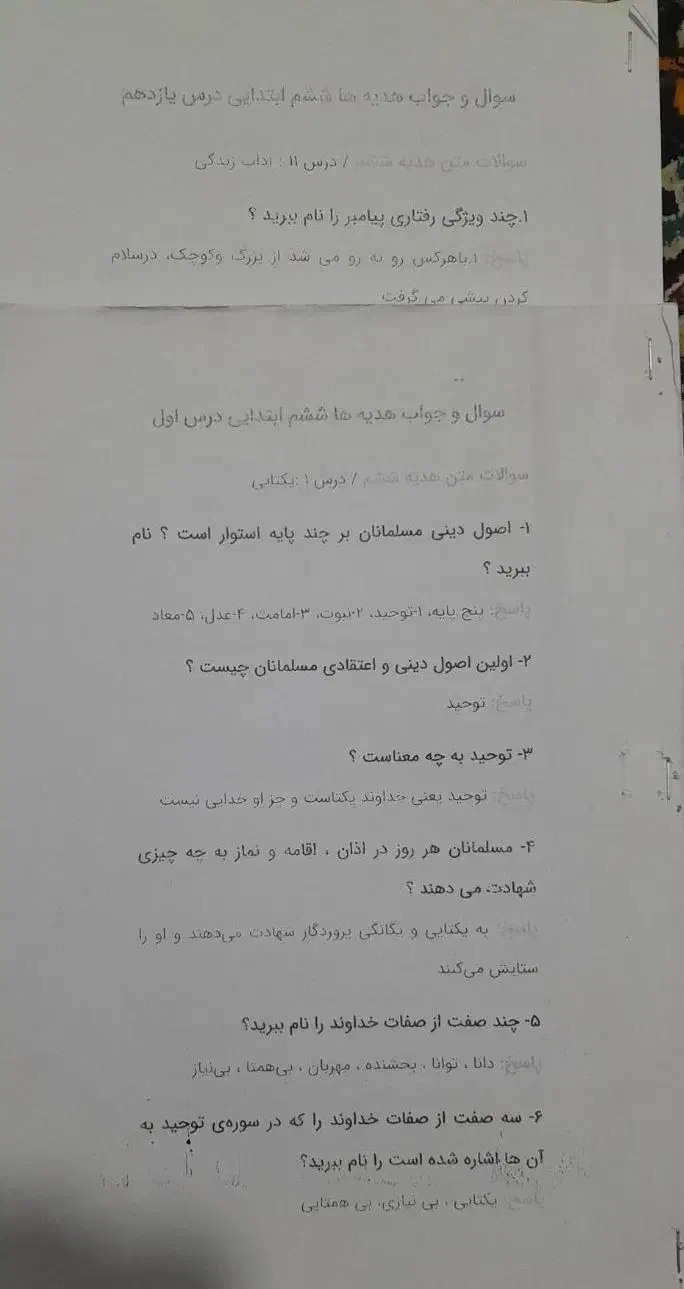 سوال و جواب هدیه ها ششم ابتدایی درس یازدهم
سوالات متن هدیه ششم / درس ۱۱ : اداب زندگی
۱.چند ویژگی رفتاری پیامبر را نام ببرید ؟
پاسخ: ۱.باهرکس رو به رو می شد از بزرگ وکوچک، درسلام
کردن پیشی می گرفت
سوال و جواب هدیه ها ششم ابتدایی درس اول
سوالات متن هدیه ششم / درس ۱ :یکتایی
۱- اصول دینی مسلمانان بر چند پایه استوار است ؟ نام
ببرید ؟
پاسخ: پنج پایه، ۱-توحید، ۲-نبوت، ۳-امامت، ۴-عدل، ۵-معاد
۲- اولین اصول دینی و اعتقادی مسلمانان چیست ؟
پاسخ: توحید
۳- توحید به چه معناست ؟
پاسخ: توحید یعنی خداوند یکتاست و جز او خدایی نیست
۴- مسلمانان هر روز در اذان ، اقامه و نماز به چه چیزی
شهادت می دهند ؟
پاسخ: به یکتایی و یگانگی پروردگار شهادت می‌دهند و او را
ستایش می‌کنند
۵- چند صفت از صفات خداوند را نام ببرید؟
پاسخ: دانا ، توانا ، بخشنده ، مهربان ، بی‌همتا ، بی‌نیاز
۶- سه صفت از صفات خداوند را که در سوره‌ی توحید به
آن ها اشاره شده است را نام ببرید؟
پاسخ: یکتایی ، بی نیازی، بی همتایی